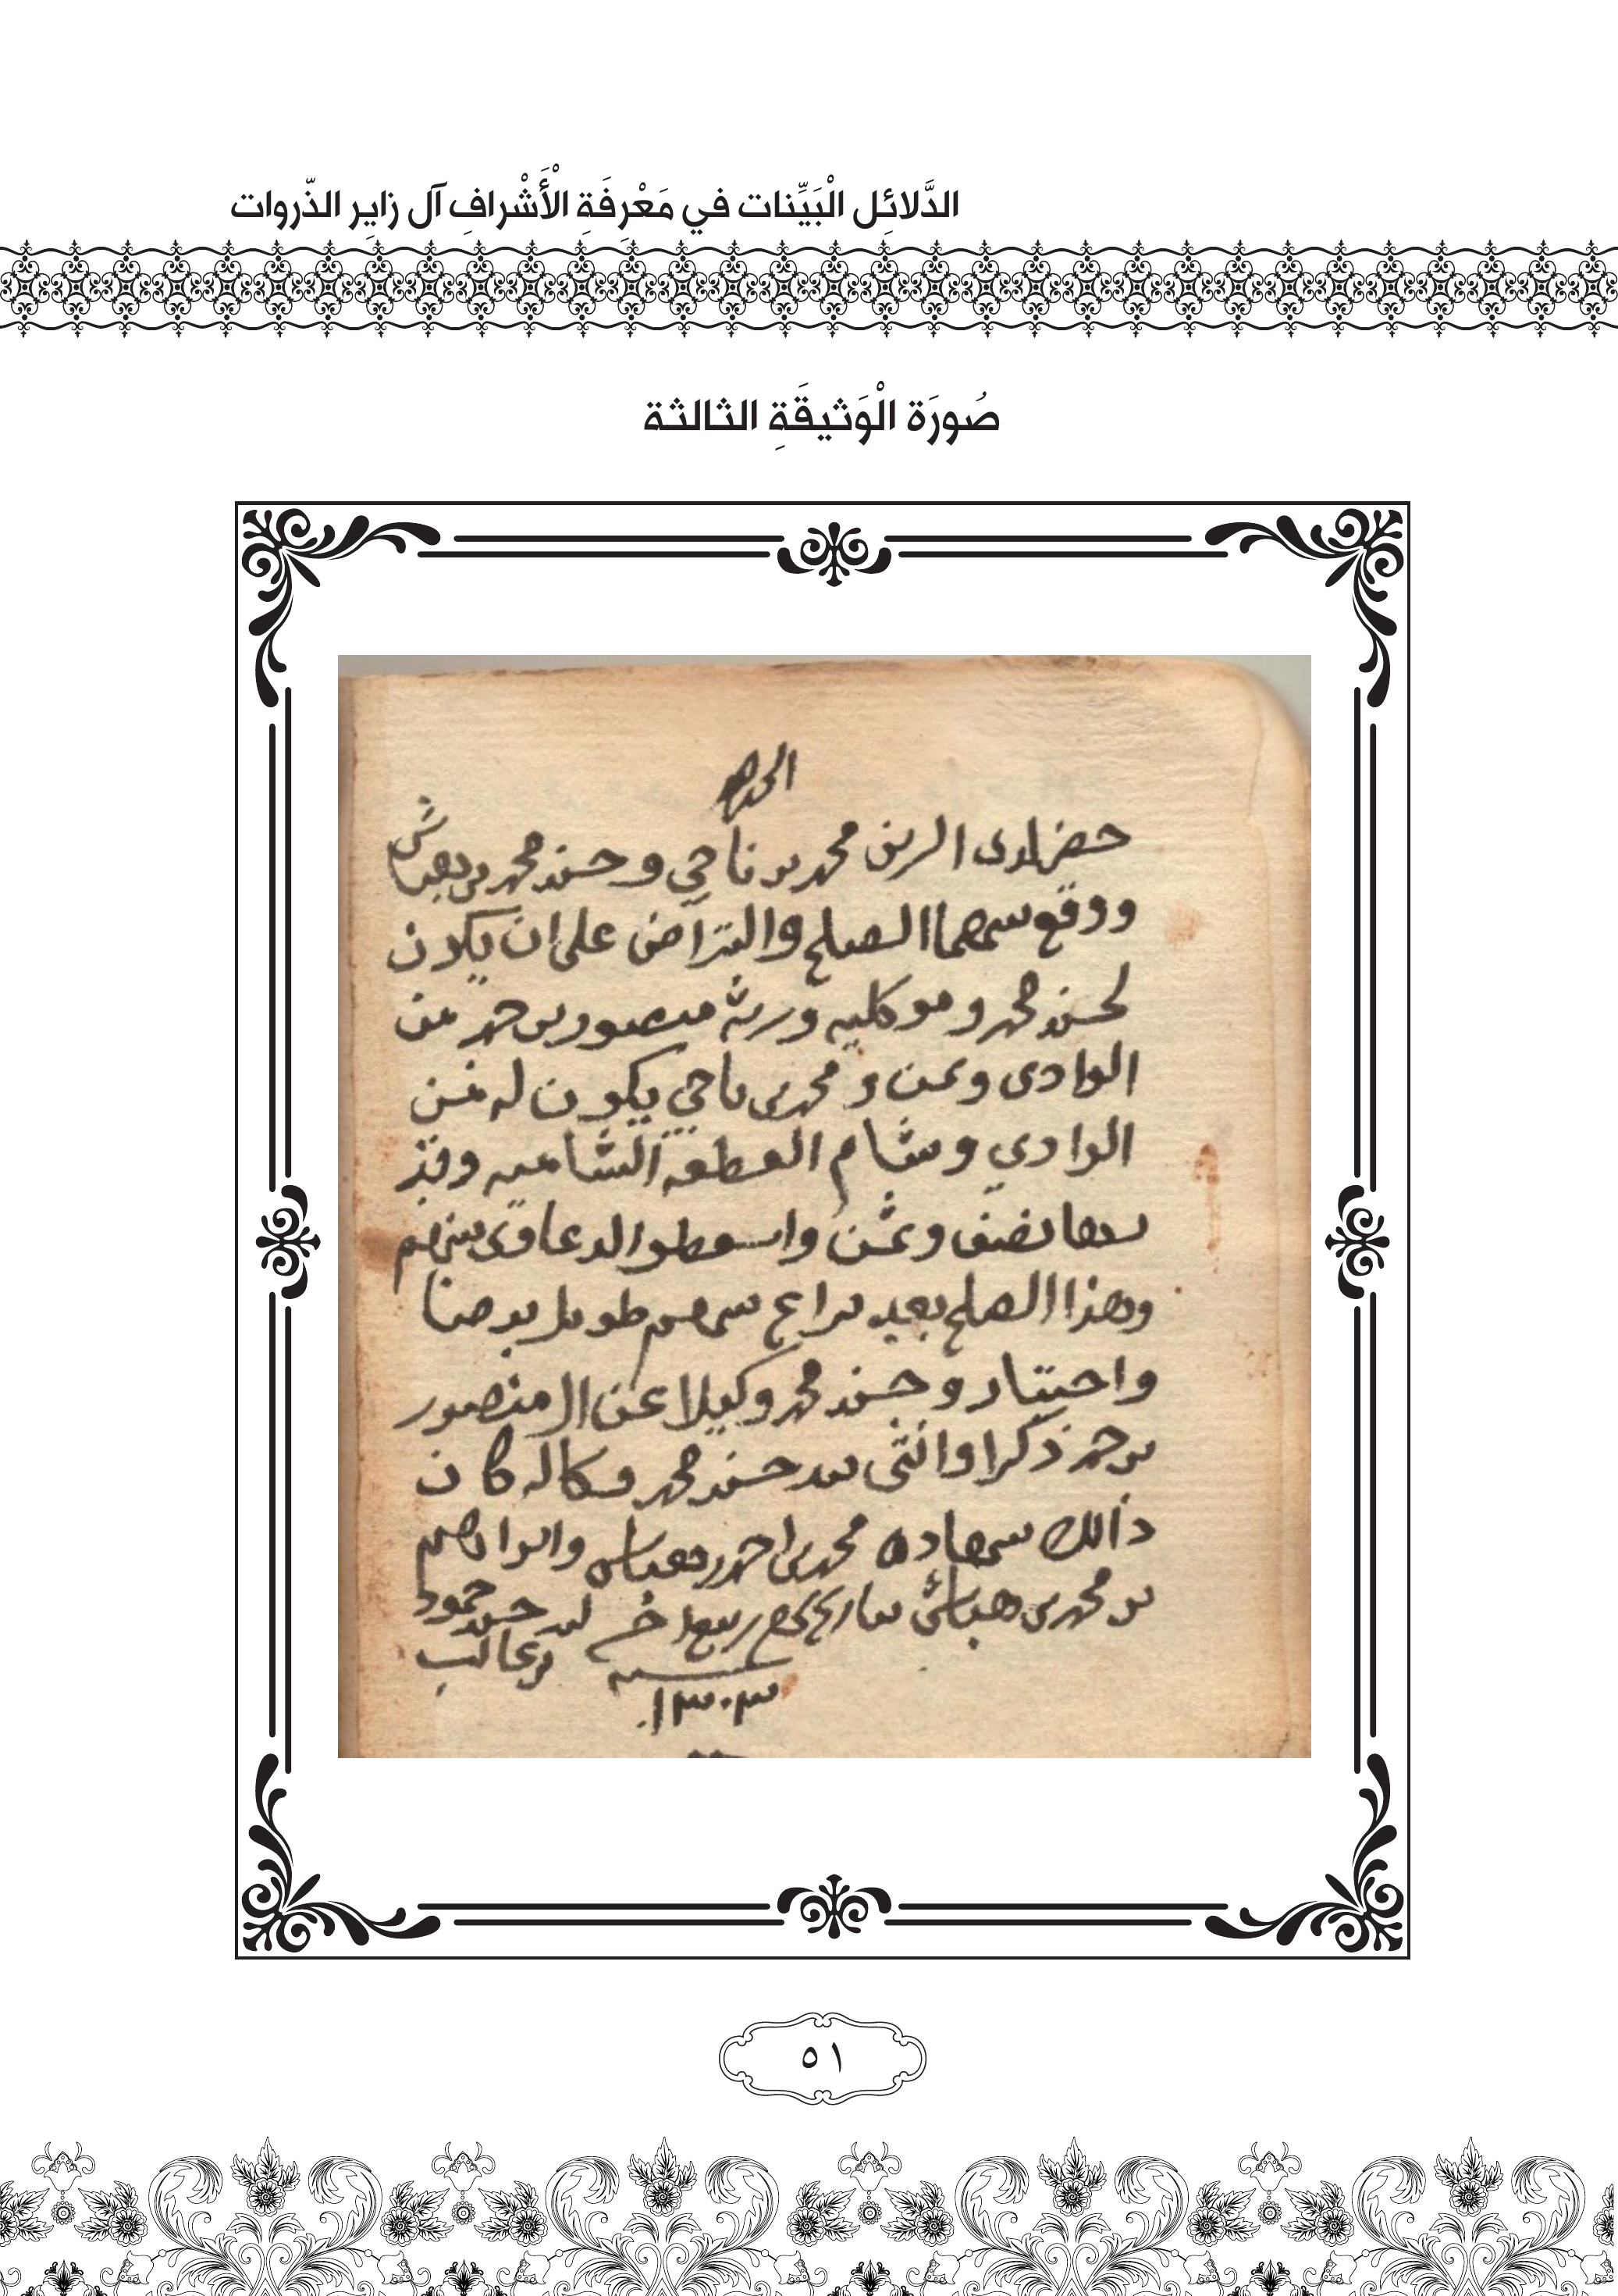 الدَّلائِل الْبَيِّنات في مَعْرِفَةِ الْأَشْرافِ آل زايِر الذّروات
صُورَة الْوَثيقَةِ الثالثة
الحمد لله
حضر لدي الزين محمد بن ناجي وحسن محمد بن هباش
ووقع بينهما الصلح والتراضي على ان يكون
لحسن محمد وموكليه ورثه منصور بن حمد من
الوادي وعن و محمد بن ناجي يكون له من
الوادي وشام القطعه الشاميه وقد
نصف وثمن واسقطوا الدعاوى بينهم
وهذا الصلح بعد نزاع بينهم طويل برضا
واختيار وحسن محمد وكيلا عن ال منصور
بن حمد ذكرا وانثى بيد حسن محمد وكاله كان
ذالك بشهادة محمد بن احمد هباش وابراهيم
بن محمد بن هباش بتاريخ ربيع اخر حمود
بن غالب
سنه
١٣٠٣
٥١